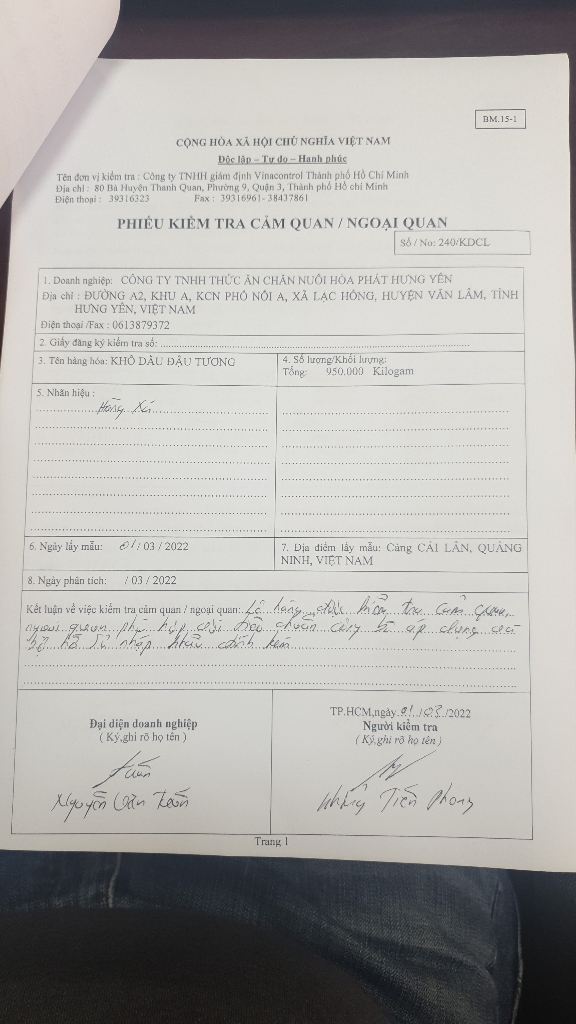 BM.15-1
CỘNG HÒA XÃ HỘI CHỦ NGHĨA VIỆT NAM
Độc lập – Tự do – Hạnh phúc
Tên đơn vị kiểm tra : Công ty TNHH giám định Vinacontrol Thành phố Hồ Chí Minh
Địa chỉ : 80 Bà Huyện Thanh Quan, Phường 9, Quận 3, Thành phố Hồ chí Minh
Điện thoại : 39316323 Fax : 39316961- 38437861
PHIẾU KIỂM TRA CẢM QUAN / NGOẠI QUAN
Số / No: 240/KDCL
1. Doanh nghiệp: CÔNG TY TNHH THỨC ĂN CHĂN NUÔI HÒA PHÁT HƯNG YÊN
Địa chỉ : ĐƯỜNG A2, KHU A, KCN PHỐ NỐI A, XÃ LẠC HỒNG, HUYỆN VĂN LÂM, TỈNH
HƯNG YÊN, VIỆT NAM
Điện thoại /Fax : 0613879372
2. Giấy đăng ký kiểm tra số:
3. Tên hàng hóa: KHÔ DẦU ĐẬU TƯƠNG
4. Số lượng/Khối lượng:
Tổng: 950.000 Kilogam
5. Nhãn hiệu :
Hàng Xá
6. Ngày lấy mẫu: 01/ 03 / 2022
7. Địa điểm lấy mẫu: Cảng CÁI LÂN, QUẢNG
NINH, VIỆT NAM
8. Ngày phân tích: / 03 / 2022
Kết luận về việc kiểm tra cảm quan / ngoại quan: Lô hàng được kiểm tra cảm quan,
ngoại quan phù hợp với tiêu chuẩn công bố áp dụng và
hồ sơ nhập khẩu đính kèm
TP.HCM,ngày 01/03/2022
Đại diện doanh nghiệp
( Ký,ghi rõ họ tên )
Người kiểm tra
( Ký,ghi rõ họ tên )
Nguyễn Văn Tuấn
Tiến Phong
Trang 1